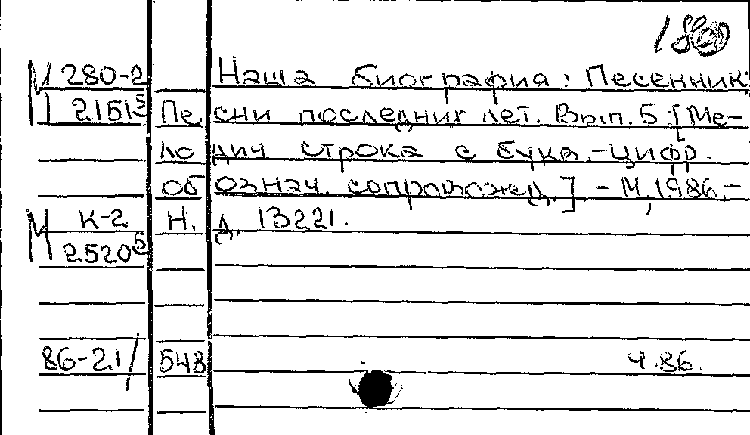 М 280-2 Наша биография: Песенник:
2151 Песни последних лет. Вып. 5.-[Ме-
лодич строка с букв.-цифр.
обознач. сопровожд.]. - М, 1986.-
М К-2 Н. д. 13221.
2520
86-21/548 4.86.